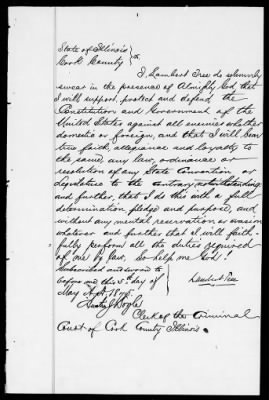 State of Illinois } ss.
Cook County
I, Lambert Tree do solemnly
swear in the presence of Almighty God, that
I will support, protect and defend the
Constitution and Government of the
United States against all enemies whether
domestic or foreign, and that I will bear
true faith, allegiance and loyalty to
the same, any law, ordinance or
resolution of any State Convention or
Legislature to the contrary notwithstanding
and further, that I do this with a full
determination pledge and purpose, and
without any mental reservation or evasion
whatever and further that I will faith-
fully perform all the duties required
of me by law. So help me God!
Subscribed and sworn to
before me this 5th day of
Lambert Tree
May A.D. 1875.
Austin J. Doyle
Clerk of the Criminal
Court of Cook County Illinois.